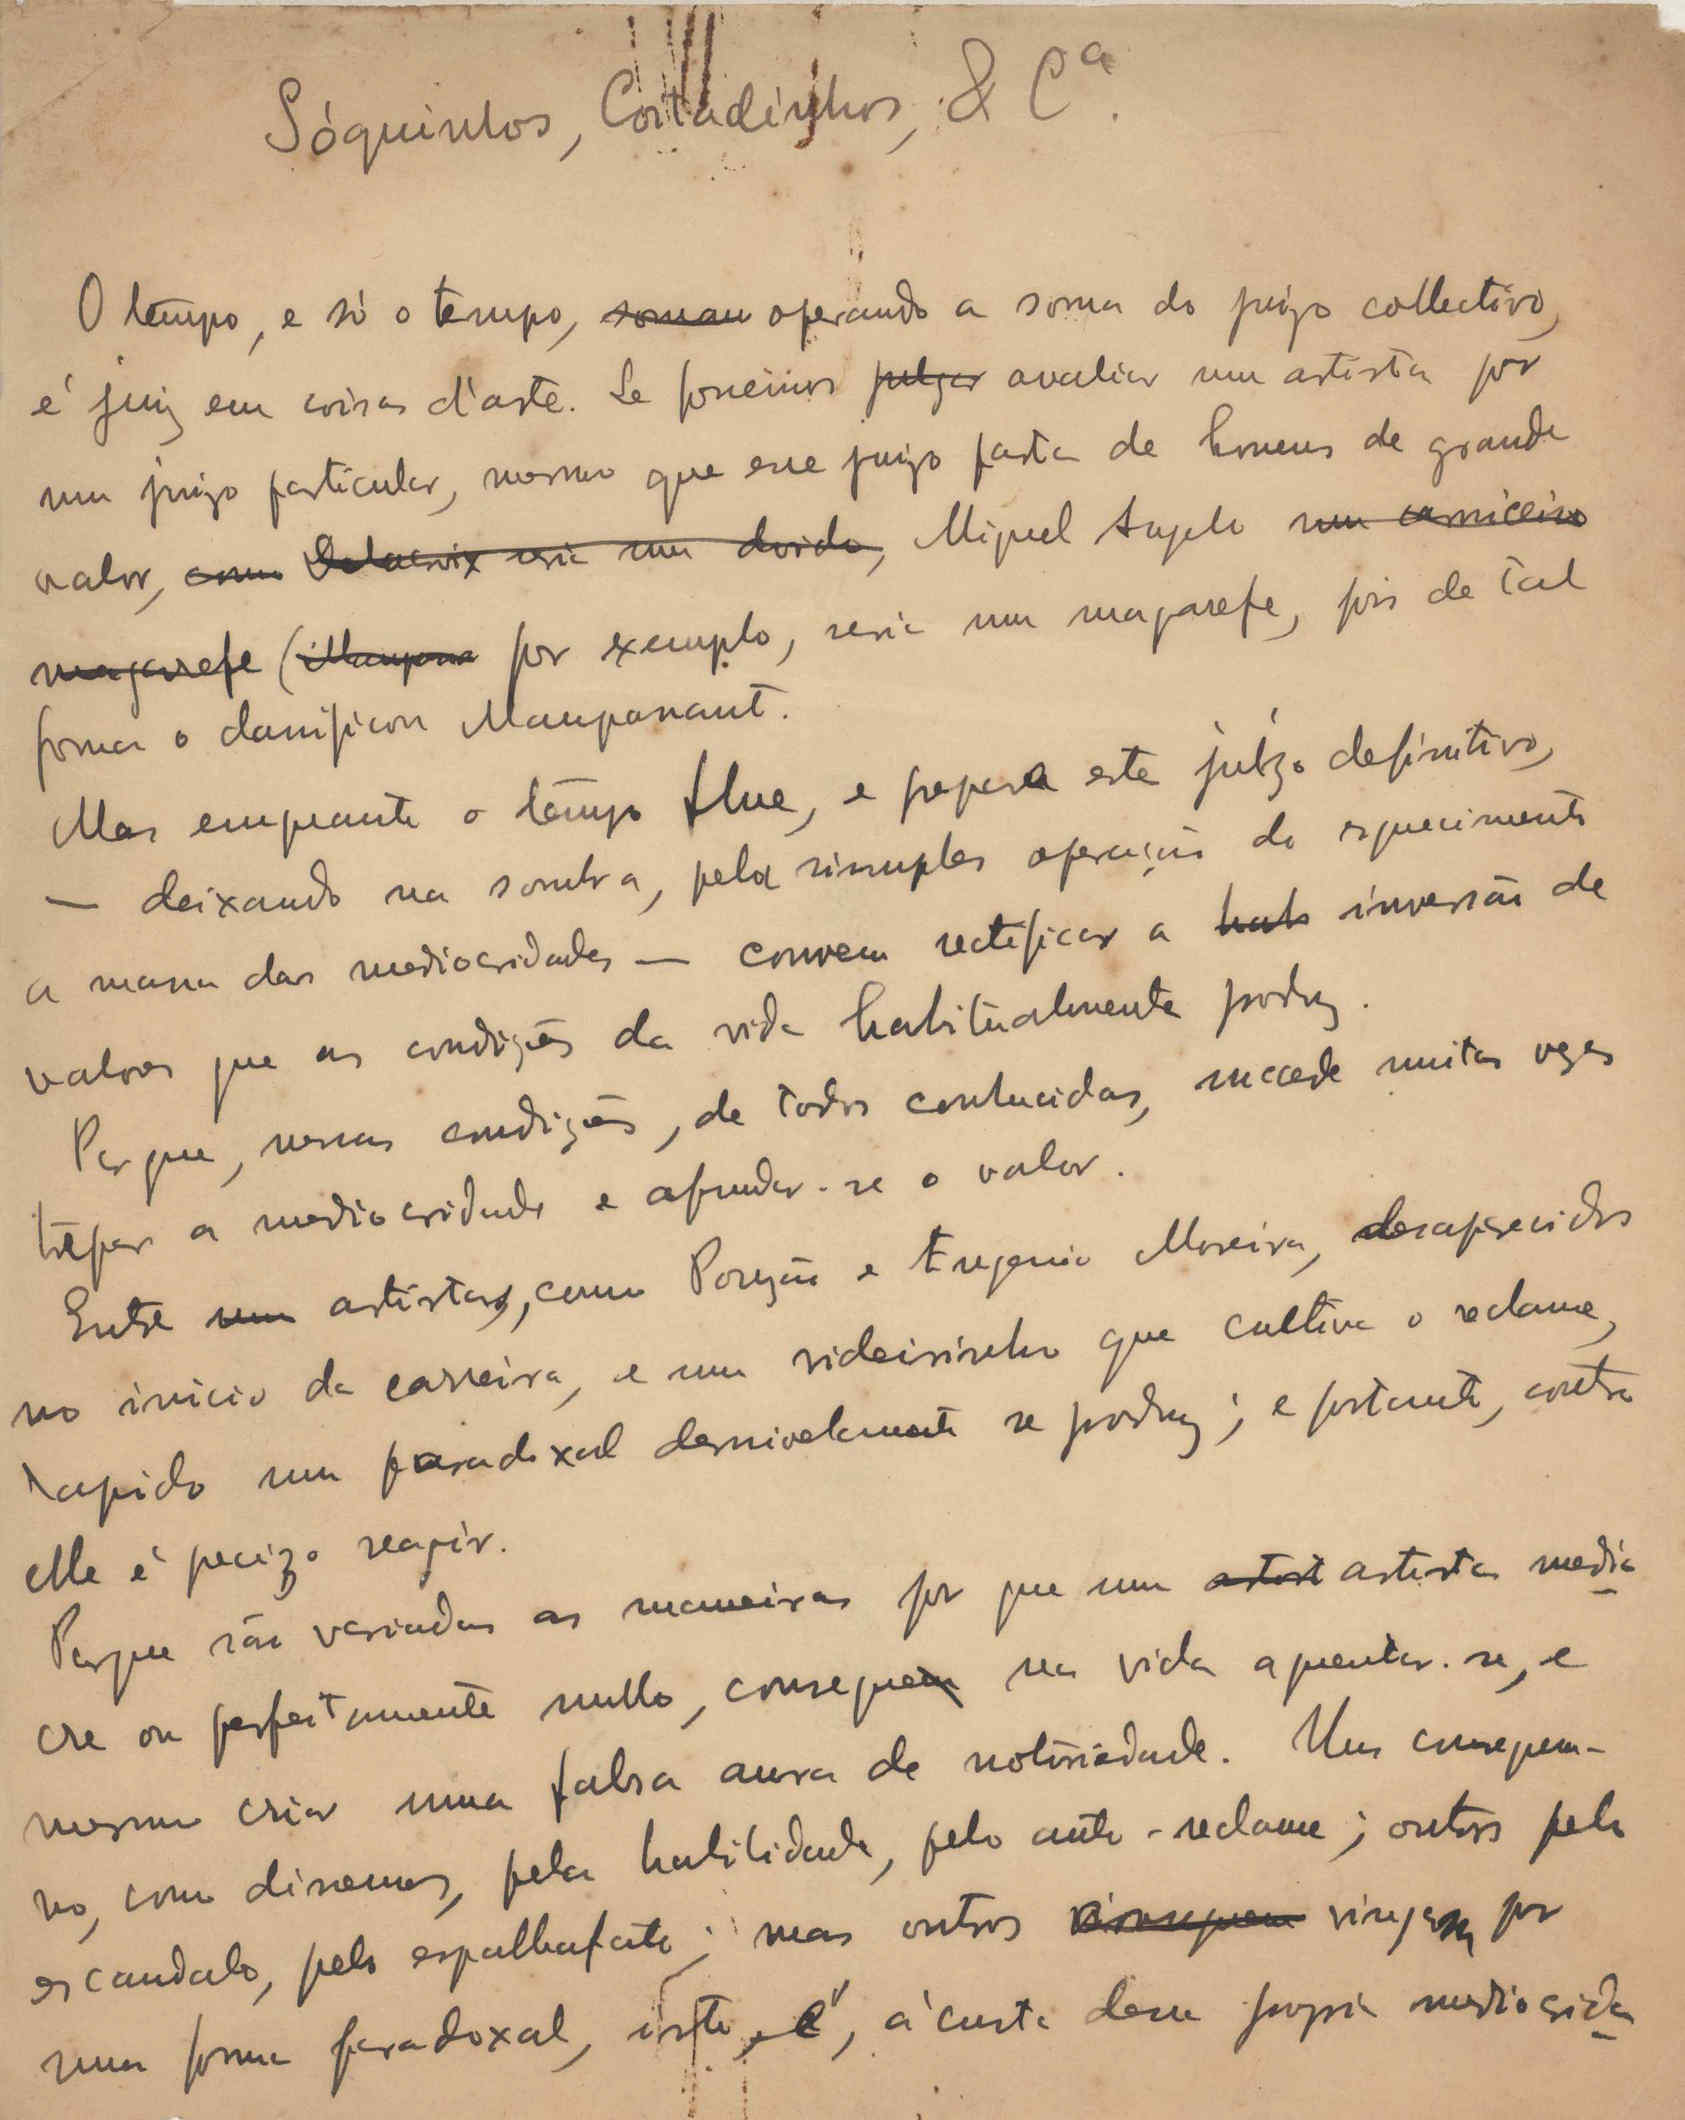 Sóquinhos, Cortadinhos, & Cª.
O tempo, e só o tempo, somau operando a soma do juizo collectivo,
é juiz em coisas d'arte. Se formos julgar avaliar um artista por
um juizo particular, mesmo que esse juizo parta de homens de grande
valor, como Delacroix seria um doido, Miguel Angelo um carniceiro
magarefe (Maupassa por exemplo, seria um magarefe, pois de tal
forma o classificou Maupassant.
Mas emquanto o tempo flue, e prepara este juizo definitivo,
— deixando na sombra, pela simples operação do esquecimento
a massa das mediocridades — convem rectificar a hab inversão de
valores que as condições da vida habitualmente produz.
Porque, nessas condições, de todos conhecidas, succede muitas vezes
trepar a mediocridade e afundar-se o valor.
Entre um artistas, como Pousão e Eugenio Moreira, desaparecidos
no inicio da carreira, e um videirinho que cultiva o reclame,
rapido um paradoxal desnivelamento se produz; e portanto, contra
elle é precizo reagir.
Porque são variadas as maneiras por que um artist artista medio
cre ou perfeitamente nullo, conseguem na vida aguentar-se, e
mesmo criar uma falsa aura de notoriedade. Uns conseguem-
no, como dissemos, pela habilidade, pelo auto-reclame; outros pelo
escandalo, pelo espalhafato; mas outros conseguem vingam por
uma forma paradoxal, isto é, á custa dessa propria mediocrida